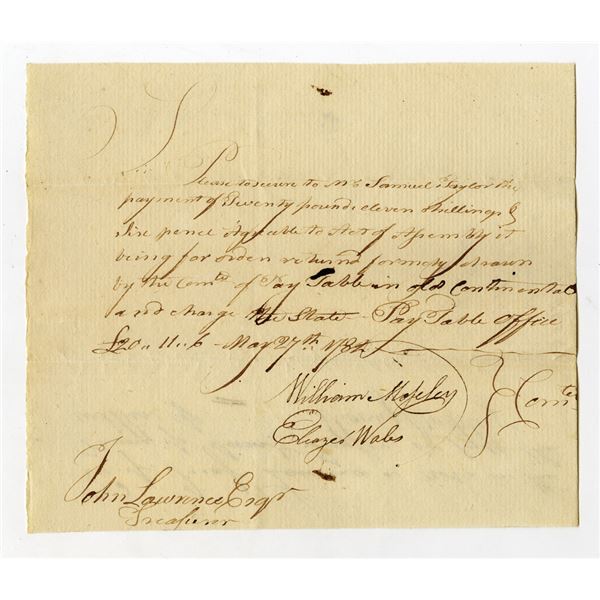 Sr
Please to secure to Mr Samuel Taylor the
payment of Twenty pounds eleven shillings &
six pence Agreable to Act of Assembly it
being for orders returnd formerly drawn
by the Comtee of Pay Table in old Continental
and charge the State Pay Table Office
£20..11..6 May 27th 1784
William Moseley
Eleazer Wales
Comtee
John Lawrence Esqr
Treasurer